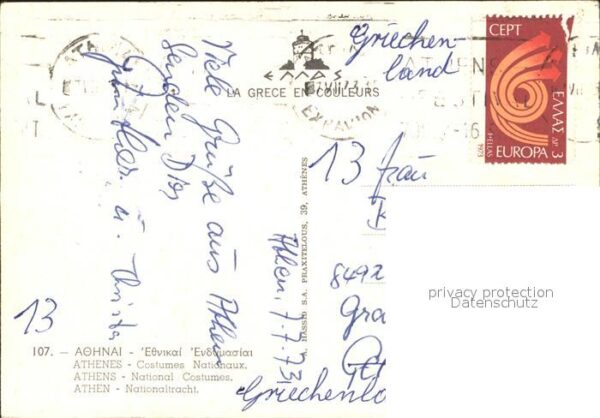 Viele Grüße aus Athen
senden Dir
Günther u. Christa
Griechen-
land
CEPT
ΕΛΛΑΣ ΔΡ. 3
HELLAS
1973
EUROPA
ΕΛΛΑΣ
LA GRECE EN COULEURS
13
13 Frau
8492
Gra
Athen, 7.7.73
HASSID S.A. PRAXITELOUS, 39, ATHÈNES
107. — ΑΘΗΝΑΙ - Ἐθνικαί Ἐνδυμασίαι
ATHENES - Costumes Nationaux.
ATHENS - National Costumes.
ATHEN - Nationaltracht.
privacy protection
Datenschutz